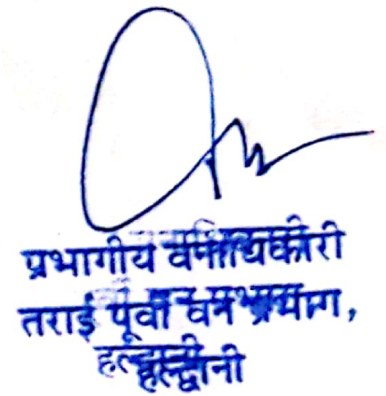 प्रभागीय वनाधिकारी
तराई पूर्वी वन प्रभाग,
हल्द्वानी